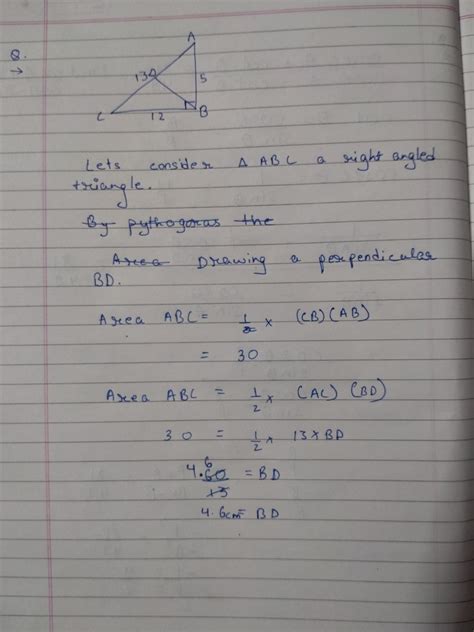 Q.
→
A
13 D
5
C
12
B
Lets consider Δ ABC a right angled
triangle.
By pythogoras the
Area Drawing a perpendicular
BD.
Area ABC = 1/2 × (CB) (AB)
= 30
Area ABC = 1/2 × (AC) (BD)
30 = 1/2 × 13 × BD
4.6
60/13 = BD
4.6cm = BD